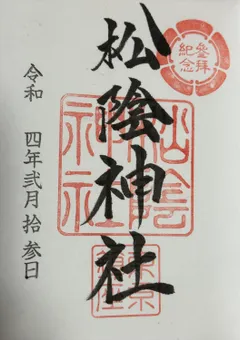 参拜
紀念
松陰神社
松陰神社
令和 四年弐月拾参日